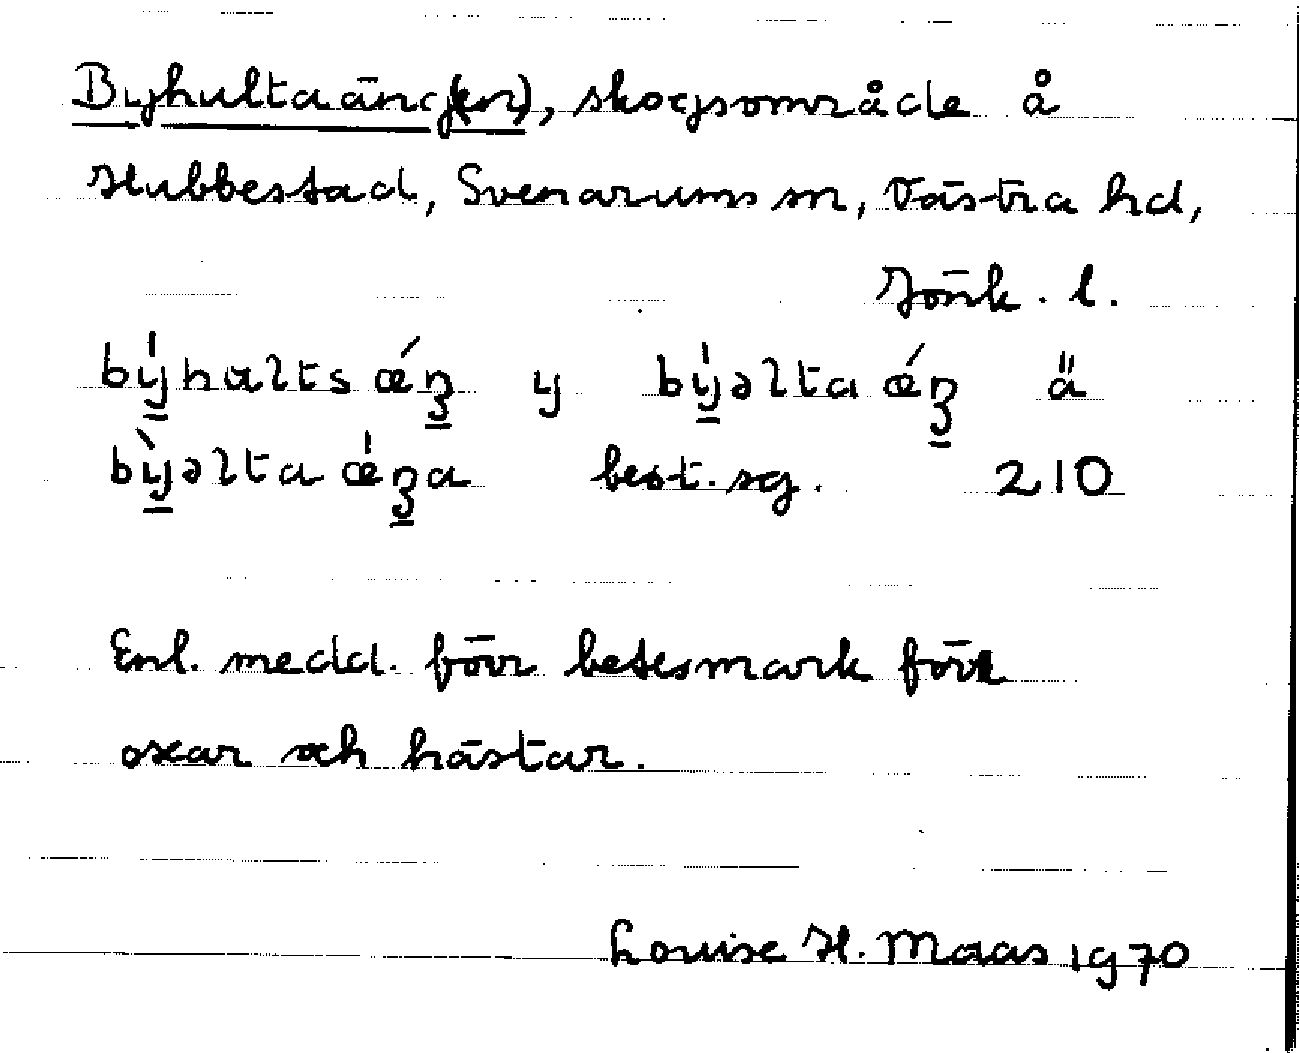 Byhultaäng(en), skogsområde å
Hubbestad, Svenarums sn, Västra hd,
Jönk. l.
y
ä
best. sg. 210
Enl. medd. förr betesmark för
oxar och hästar.
Louise H. Maas 1970